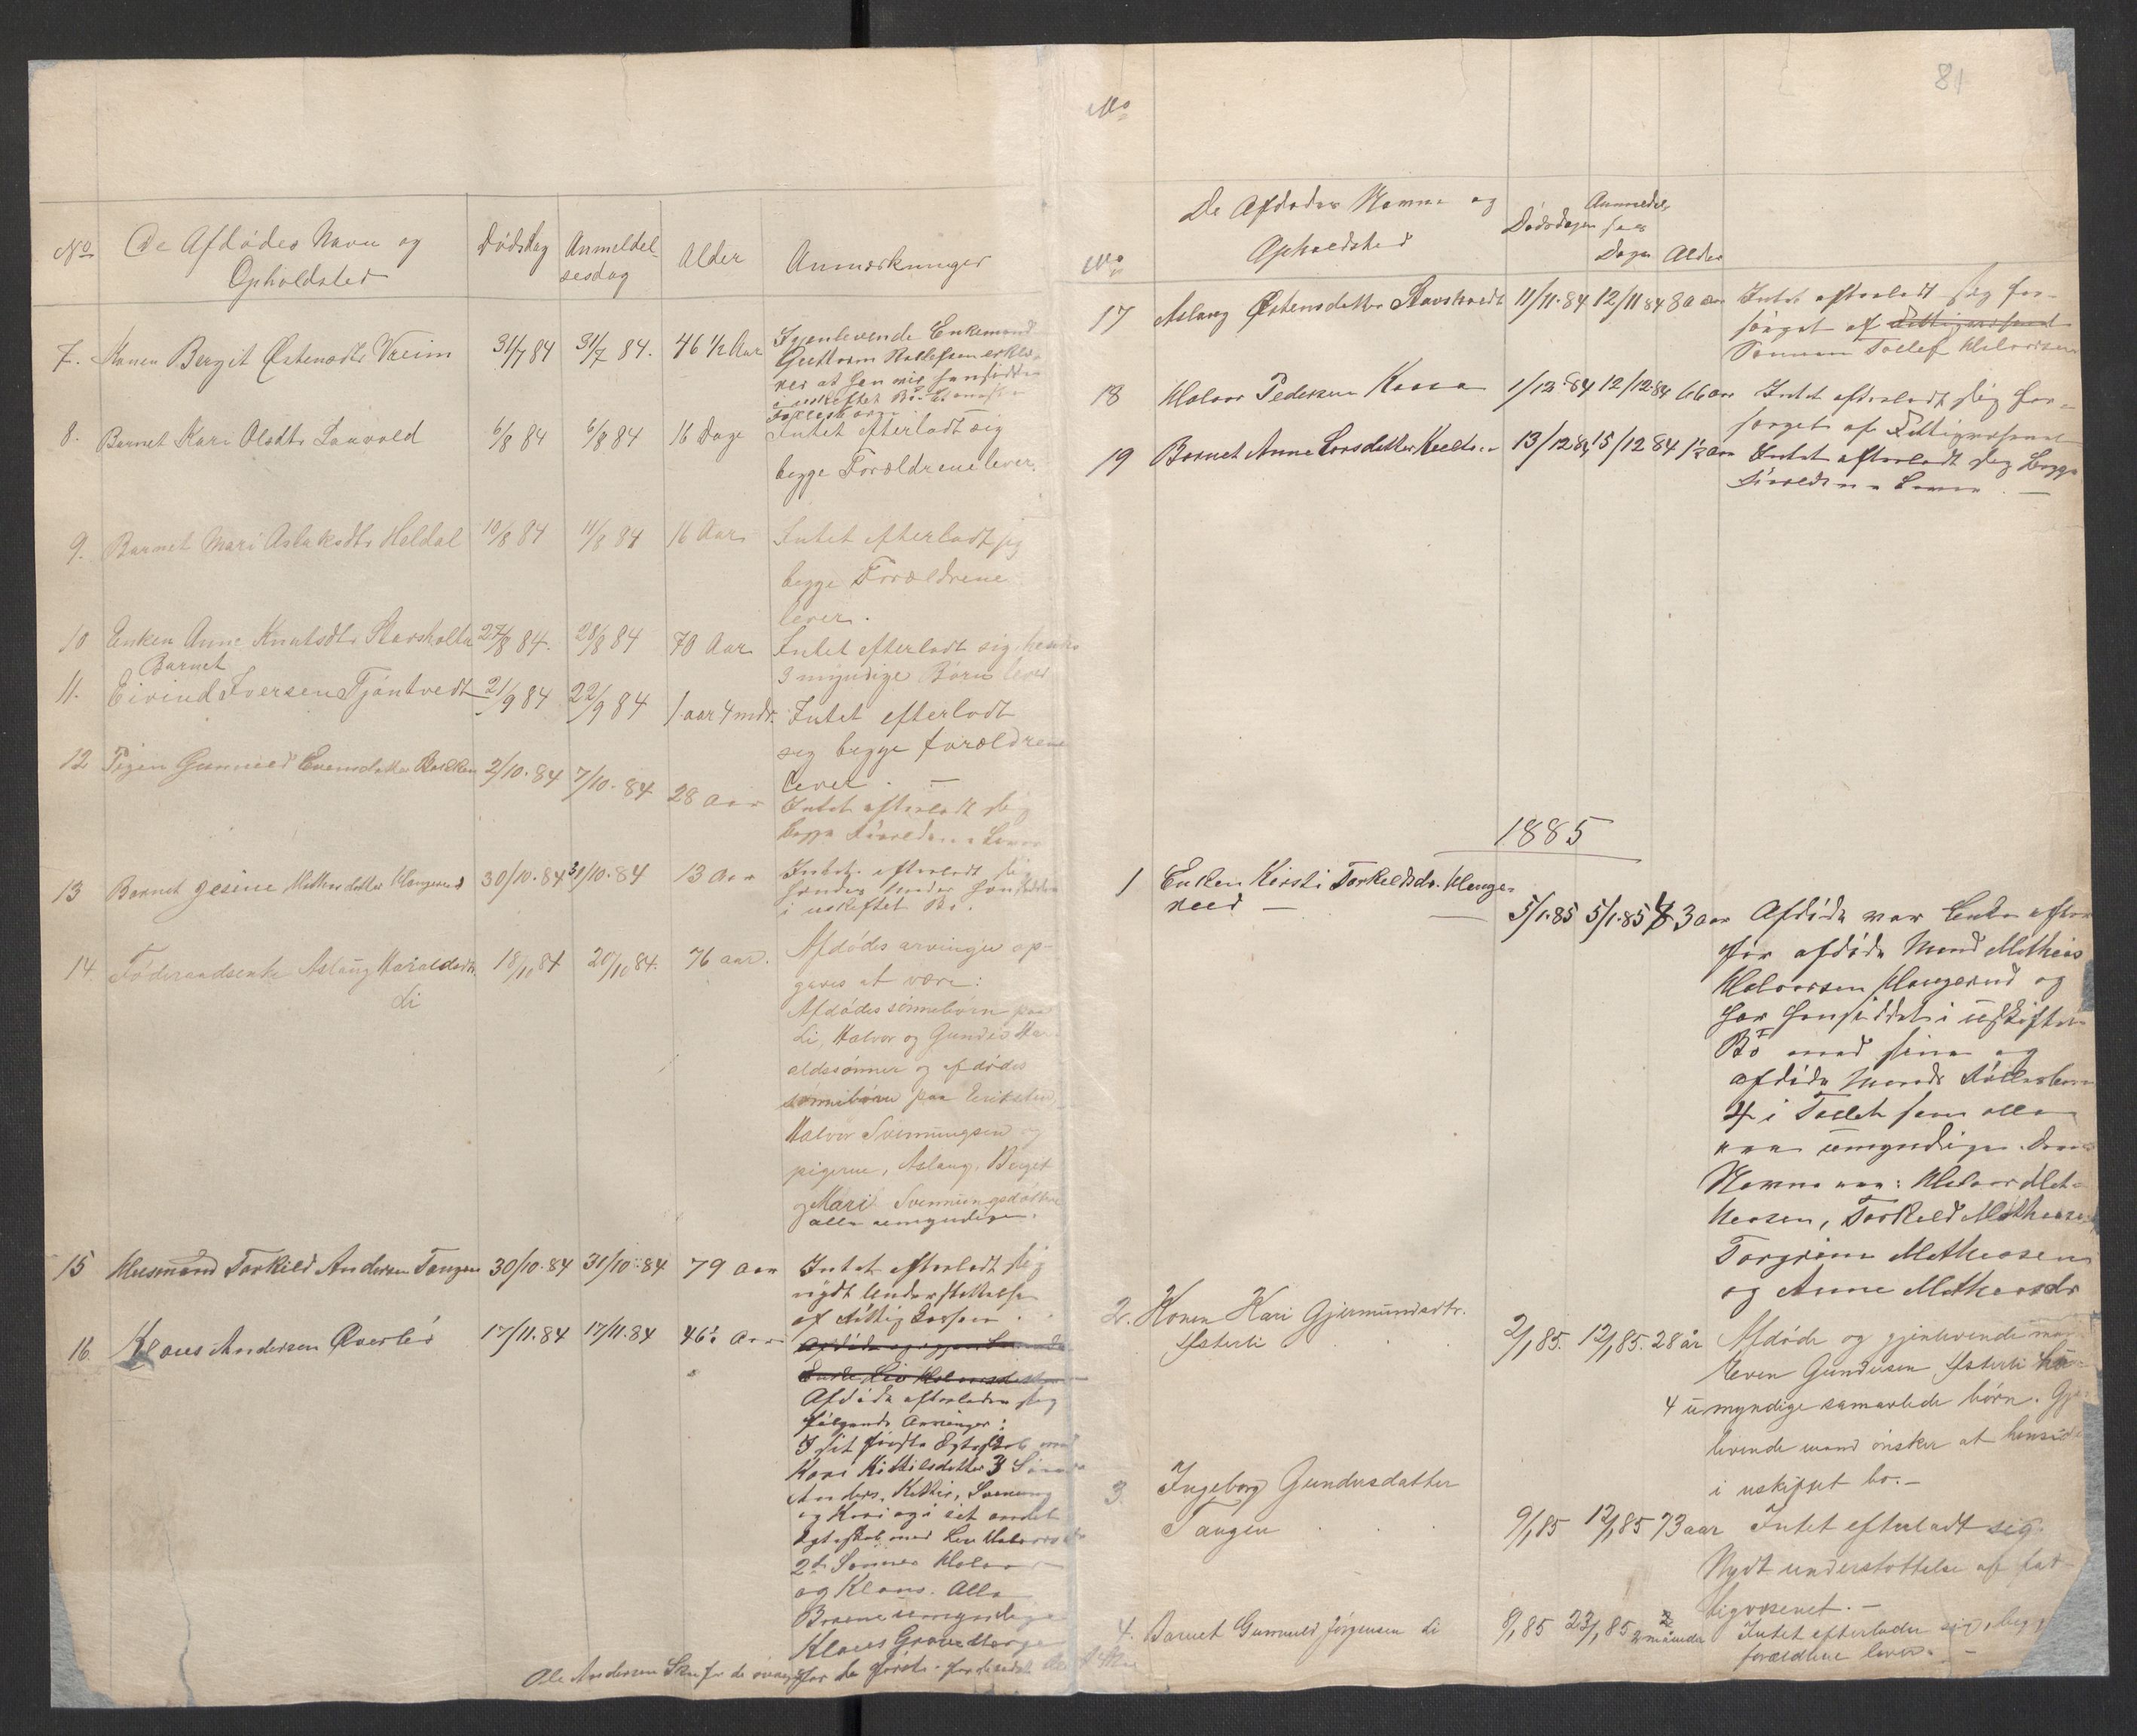 No
De Afdödes Navn og
Opholdsted
Dödsdag
Anmeldel-
sesdag
Alder
Anmærkninger
7. Konen Bergit Østensdtr Vreim 31/7 84 31/7 84. 46 1/2 Aar
Gjenlevende Enkemand
Guttorm Rollefsen erklæ-
rer at han vil hensidde
i uskiftet Bo.
8. Barnet Kari Olsdtr Lauvold 6/8 84 6/8 84 16 Dage Intet efterladt sig
begge Forældrene lever.
9. Barnet Mari Aslaksdtr Haldal 10/8 84 11/8 84 16 Aar Intet efterladt sig
begge Forældrene
lever.
10 Enken Anne Knutsdtr Stavsholt 27/8 84. 28/8 84 70 Aar Intet efterladt sig
3 myndige Børn lever
Barnet
11. Eivind Iversen Tjöntvedt 21/9 84 22/9 84 1 aar 4 mdr. Intet efterladt
sig begge forældrene
lever. —
12 Pigen Gunnild Evensdatter 2/10. 84 7/10. 84 28 Aar
Intet efterladt sig
begge Forældrene Lever
13 Barnet Gesine Mathiasdatter Haugerud 30/10. 84 31/10. 84 13 Aar Intet efterladt sig
hendes Moder hensidder
i uskiftet Bo.
14. Föderaadsenke Aslaug Haraldsdtr. 18/11 84 20/11 84. 76 aar.
Li
Afdödes arvinger op-
gives at være:
Afdödes sönnebörn paa
Li, Halvor og Gunder Har-
aldssönner og afdödes
sönnebörn paa
Halvor Svenningsen og
pigerne, Aslaug, Berget
og Mari Svenningsdöttre
alle umyndige.
15 Husmand Torkild Andersen Tangen 30/10. 84 31/10. 84 79 Aar Intet efterladt sig
nydt Understøttelse
af Fattig Kassen
16. Klaus Andersen Øverbö 17/11. 84 17/11. 84 46½ Aar
Afdöde efterlader sig
fölgende Arvinger:
I sit förste Egteskab med
Kari Kittilsdatter 3 Sönner
Anders, Kittil, Svenung
og Kari og i sit andet
Egteskab med Liv Halvorsdtr
2de Sönner Halvor
og Klaus. Alle
Börnene umyndige
Klaus
Ole Andersen for de for de förste.
81
No
No
De Afdødes Navne og
Opholdsted
Dödsdagen
Anmeldel-
ses
Dagen
Alder
17 Aslaug Østensdatter 11/11. 84 12/11 84 80 aar Intet efterladt sig for-
sörget af Fattigvæsenet
Sönnen Tollef Halvorsen
18 Halvor Pedersen 1/12. 84 12/12. 84 66 aar Intet efterladt sig for-
sörget af Fattigvæsenet
19 Barnet Anne Larsdatter 13/12 84 15/12 84 1½ aar Intet efterladt sig begge
Forældrene Lever. —
1885
1 Enken Kirsti Torkeldsdr. Hauge-
rud — 5/1. 85 5/1. 85 83 aar
Afdöde var Enke efter
för afdöde Mand Mathias
Halvorsen Haugerud og
har hensiddet i uskiftet
Bo med sine og
afdöde Mands Fællesbørn
4 i Tallet som alle
er umyndige. Deres
Navne er: Halvor Mat-
hiasen, Torkeld Mathiasen
Torgrim Mathiasen
og Anne Mathiasdr
2. Konen Kari Gjermundsdtr.
Østerli 2/1 85. 12/1 85. 28 år
Afdöde og gjenlevende mand
Even Gundersen Østerli har
4 umyndige samavlede börn. Gjen-
levende mand önsker at hensidde
i uskiftet bo. —
3. Ingeborg Gundersdatter
Tangen 9/1 85 12/1 85 73 aar Intet efterladt sig.
Nydt understöttelse af fat-
tigvæsenet. —
4. Barnet Gunnuld Jörgensen Li 8/1 85 23/1 85 2 måneder Intet efterlader sig, begge
forældrene lever. —